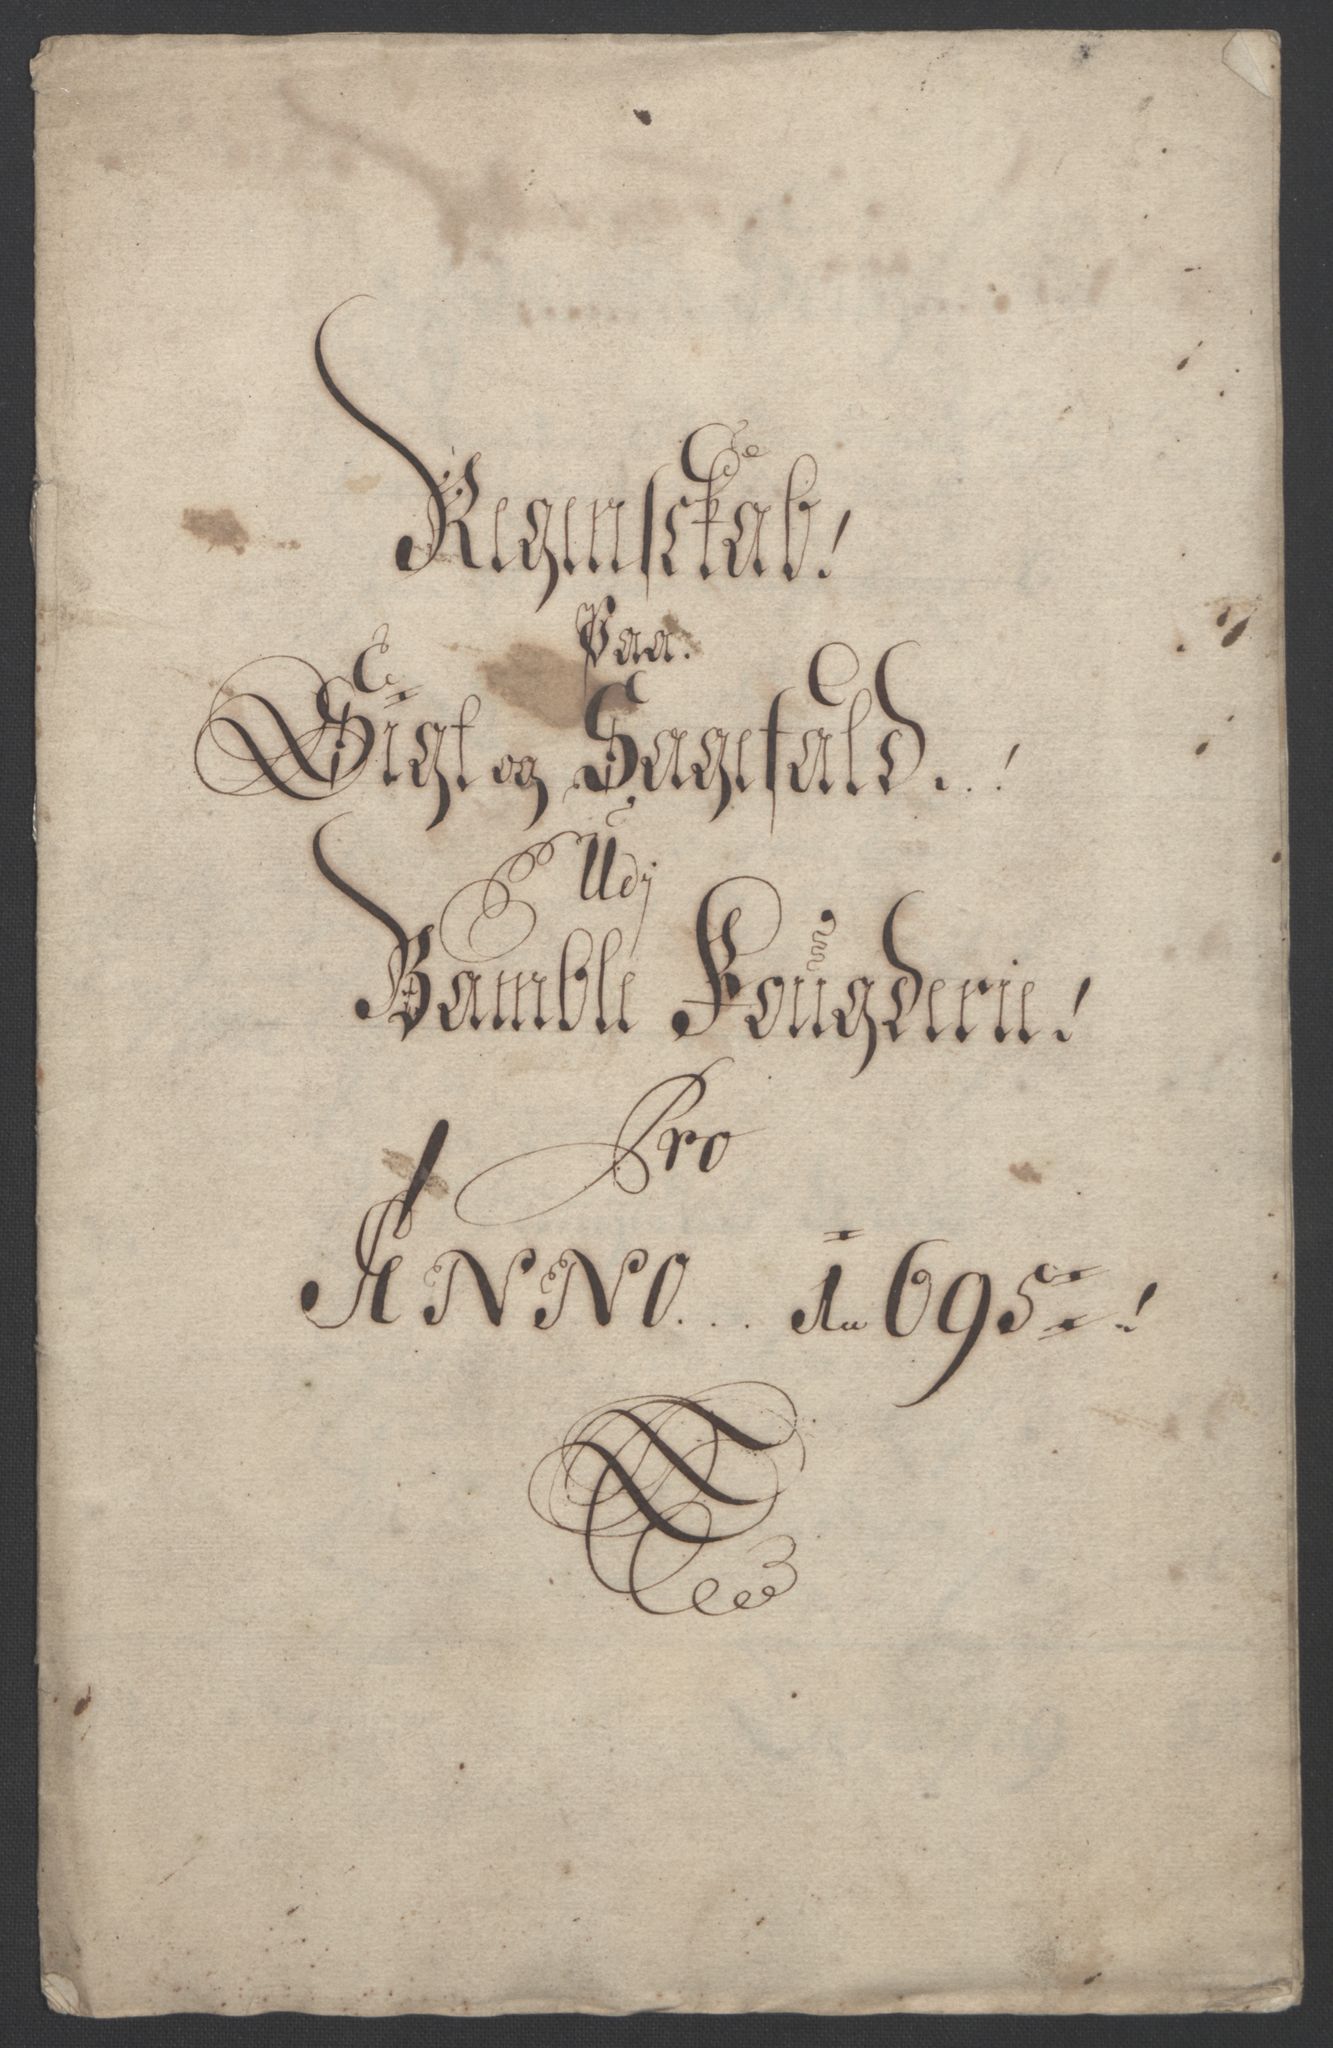 Regenskab!
Paa.
Sigt og Sagefald..!
Udj
Bamble Fougderie!
Pro
ANNO... 1695!